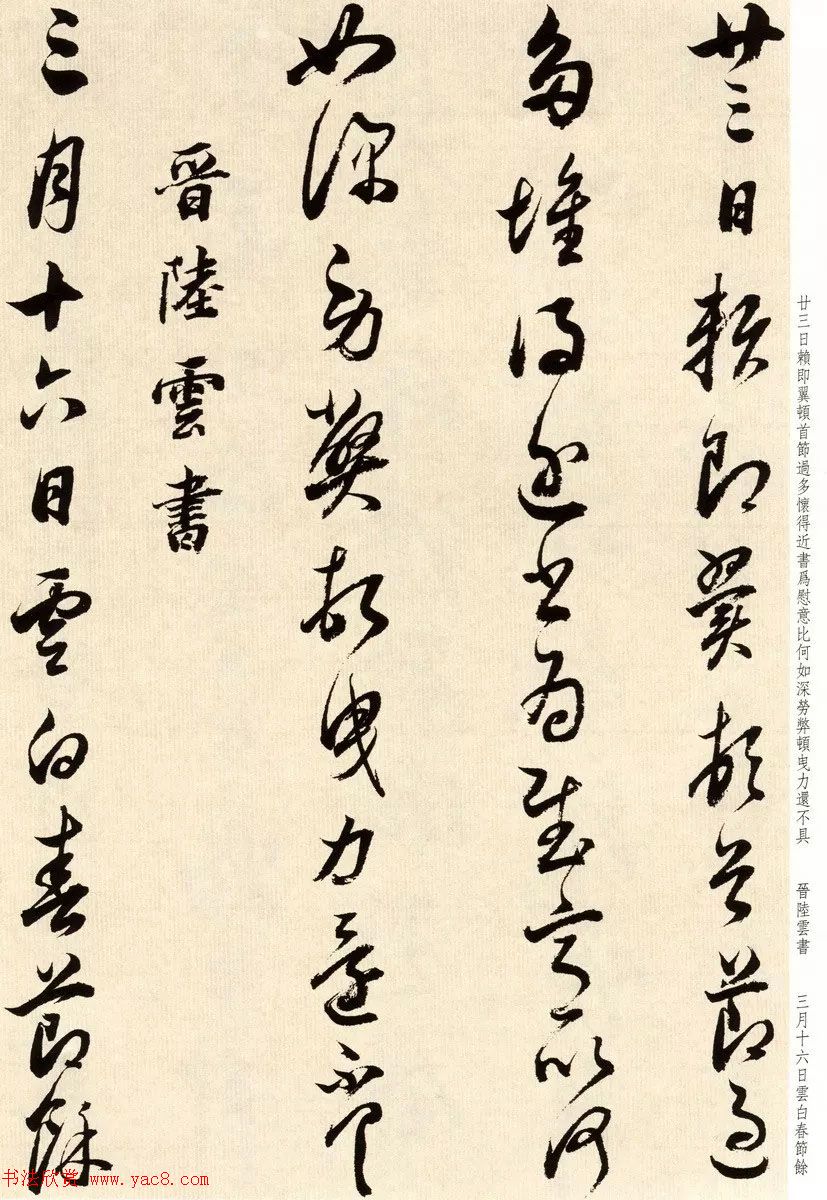 廿三日賴即翼頓首節過
多懷得近書爲慰意比何
如深勞弊頓曳力還不具
晉陸雲書
三月十六日雲白春節餘
廿三日賴即翼頓首節過多懷得近書爲慰意比何如深勞弊頓曳力還不具 晉陸雲書 三月十六日雲白春節餘
书法欣赏 www.yac8.com